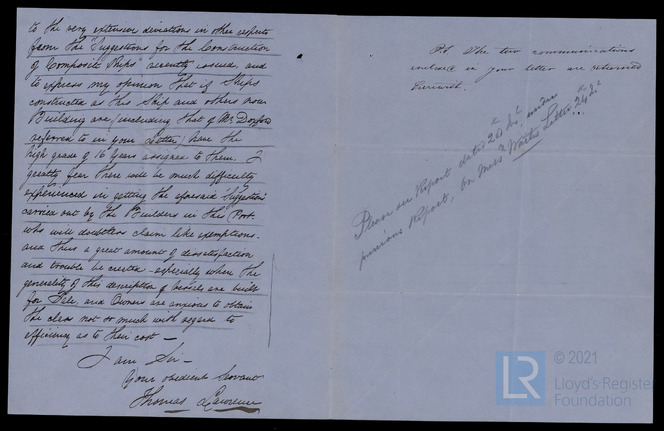 to the very extensive deviations in other respects
from the "Suggestions for the Construction
of Composite Ships" recently issued, and
to express my opinion that if Ships
constructed as this Ship and others now
Building are (including that of Mr. Doxford
referred to in your Letter) have the
high grade of 16 Years assigned to them. I
greatly fear there will be much difficulty
experienced in getting the aforesaid "Suggestions"
carried out by the Builders in this Port.
who will doubtless claim like exemptions.
and thus a great amount of dissatisfaction
and trouble be created - especially when the
generality of this description of Vessels are built
for Sale, and Owners are anxious to obtain
the class not so much with regard to
efficiency as to their cost -
I am Sir -
Your obedient Servant
Thomas Lawrence
P.S. The two communications
enclosed in your letter are returned
herewith.
Please see Report dated 20 under
previous Report, on Mess Letter 24
© 2021
LR
Lloyd's Register
Foundation